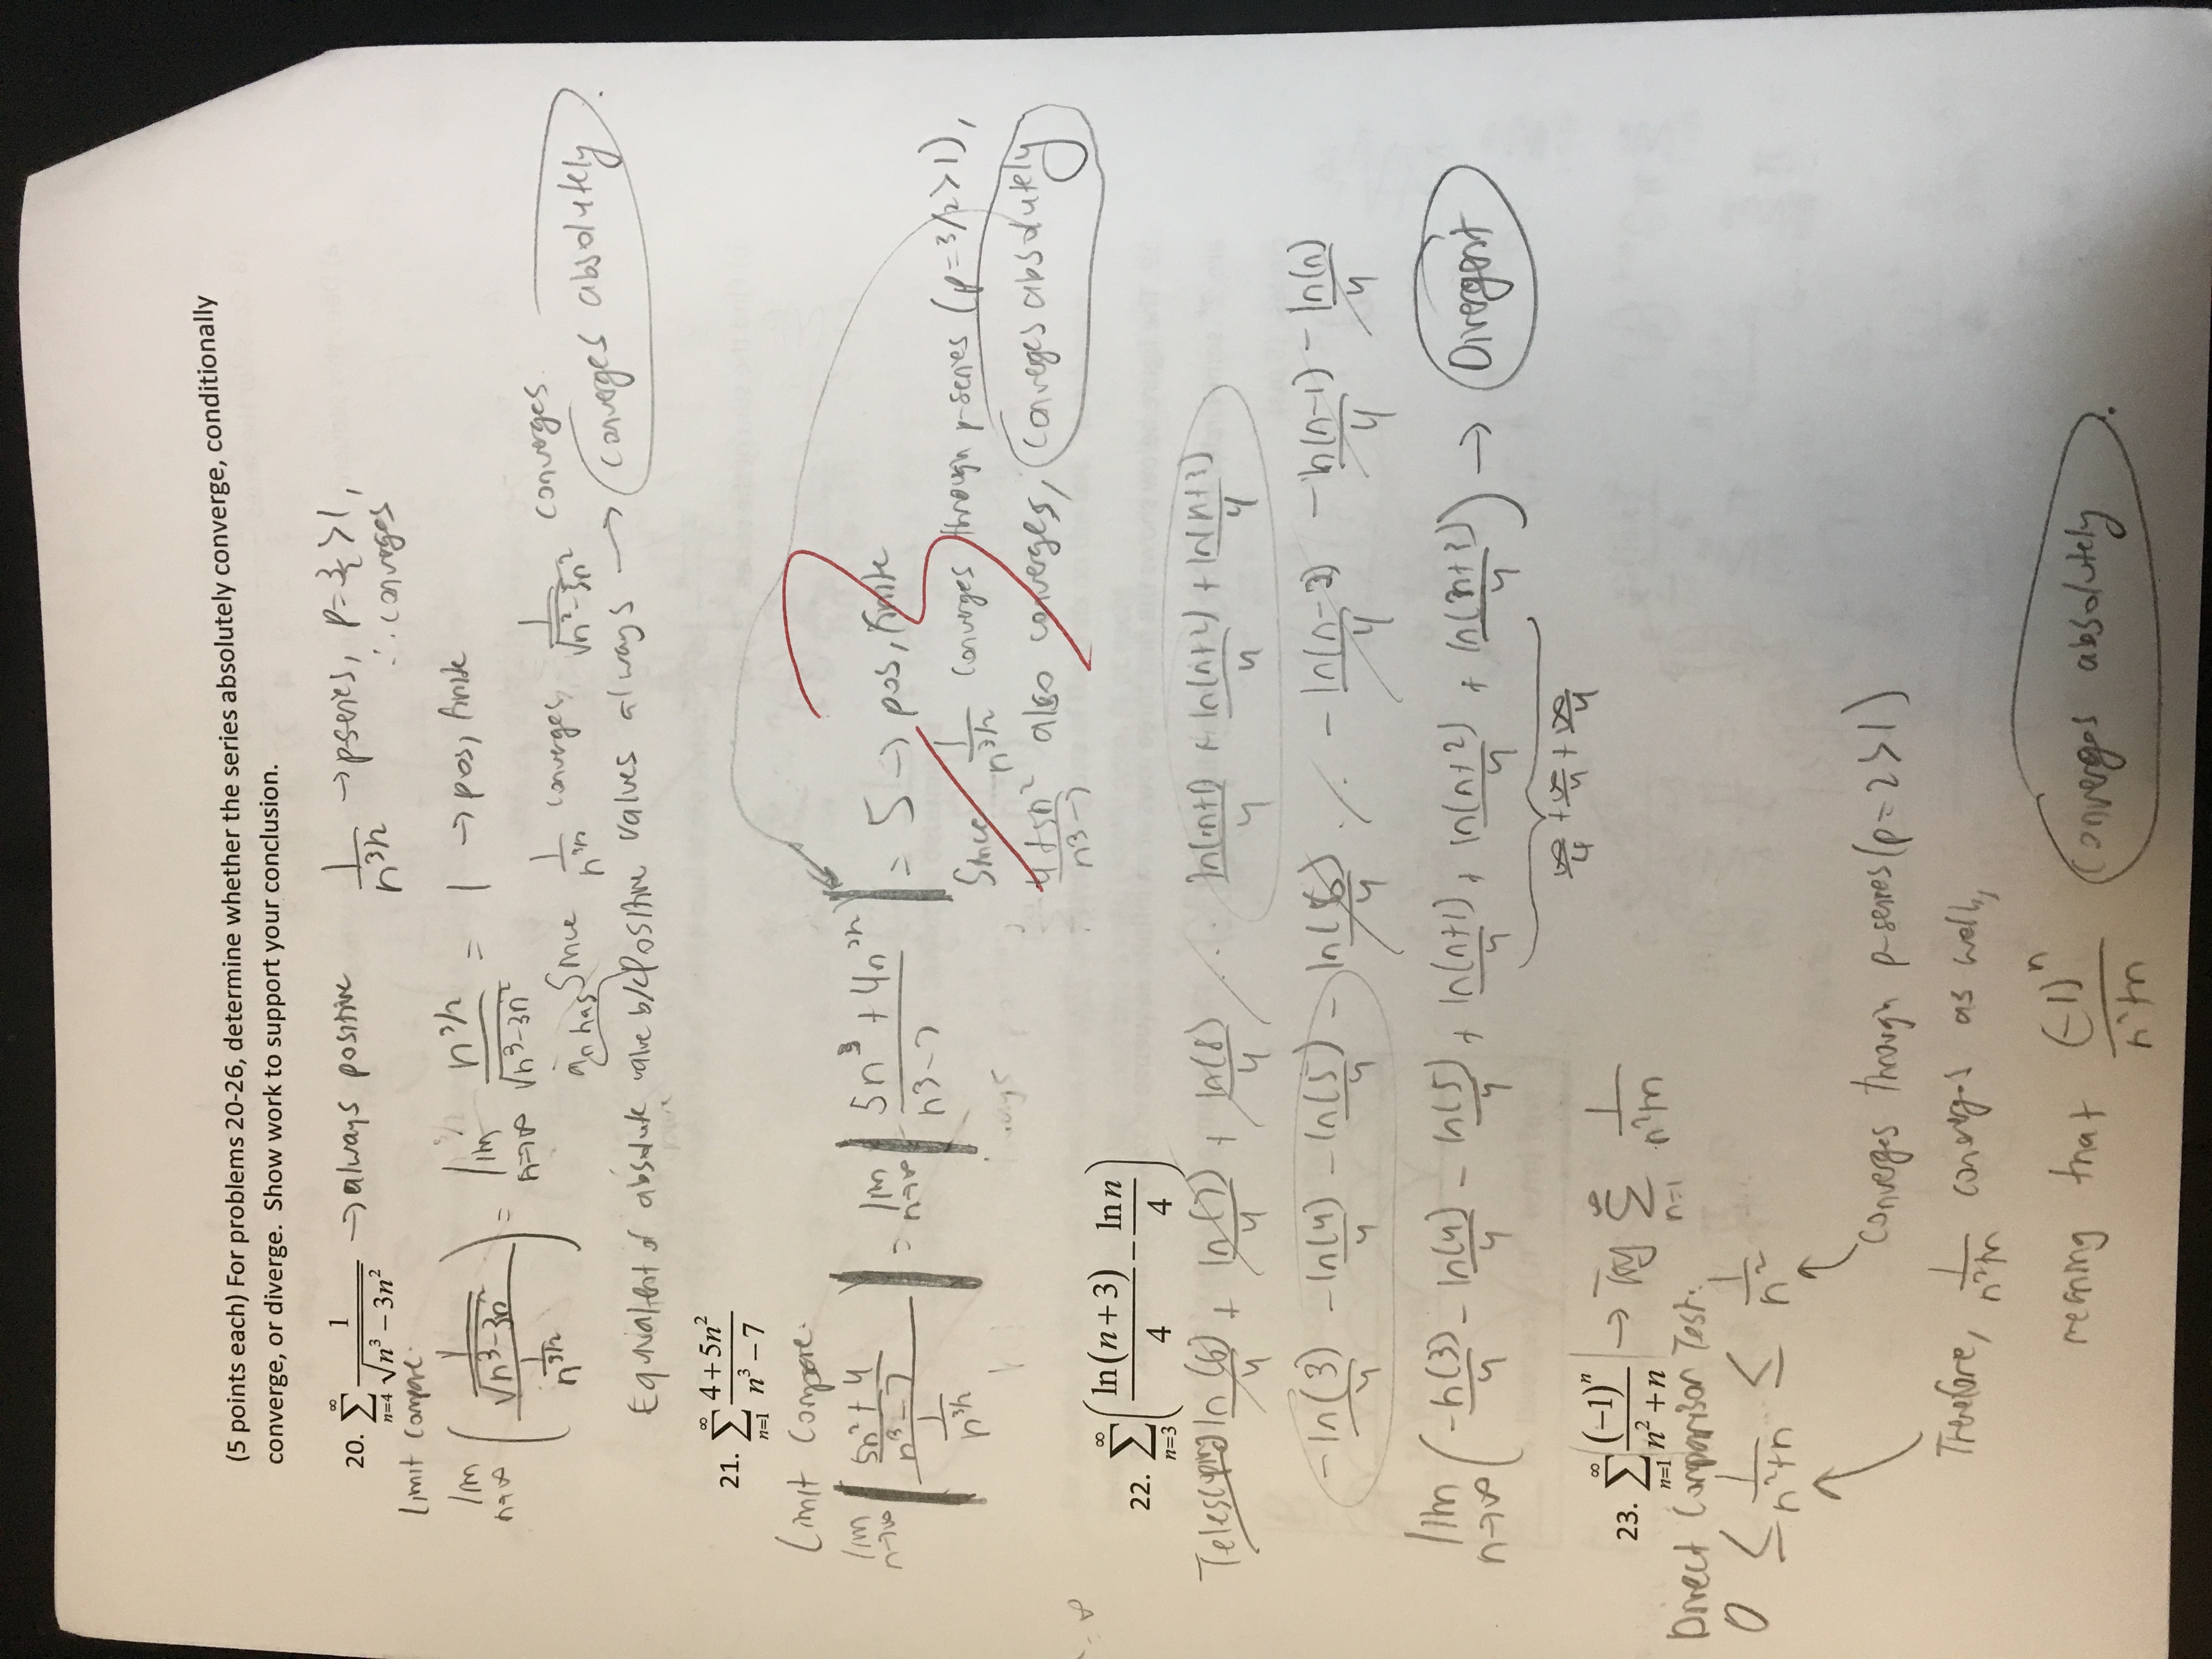 (5 points each) For problems 20-26, determine whether the series absolutely converge, conditionally
converge, or diverge. Show work to support your conclusion.
20. ∑_{n=4}^{∞} 1/√(n³ − 3n²) → always positive 1/n^{3/2} → p series, p = 3/2 > 1,
∴ converges
Limit compare:
lim_{n→∞} ( (1/√(n³−3n²)) / (1/n^{3/2}) ) = lim_{n→∞} n^{3/2}/√(n³−3n²) = 1 → pos, finite
Since 1/n^{3/2} converges, 1/√(n³−3n²) converges
a_n has
Equivalent of absolute value b/c positive values always → converges absolutely.
21. ∑_{n=1}^{∞} (4+5n²)/(n³ − 7)
Limit Compare:
lim_{n→∞} | ((5n²+4)/(n³−7)) / (1/n^{3/2}) | = lim_{n→∞} | (5n³ + 4n^{3/2})/(n³−7) | = 5 → pos, finite
Since 1/n^{3/2} converges through p-series (p=3/2>1),
(4+5n²)/(n³−7) also converges, Converges absolutely
= ∞
22. ∑_{n=3}^{∞} ( ln(n+3)/4 − ln n/4 )
Telescoping ln(6)/4 + ln(7)/4 + ln(8)/4 ... ln(n+1)/4 + ln(n+2)/4 + ln(n+3)/4
−ln(3)/4 − ln(4)/4 − ln(5)/4 − ln(6)/4 ... − ln(n−2)/4 − ln(n−1)/4 − ln(n)/4
lim_{n→∞} ( −ln(3)/4 − ln(4)/4 − ln(5)/4 + ln(n+1)/4 + ln(n+2)/4 + ln(n+3)/4 ) → Divergent
∞/4 + ∞/4 + ∞/4
23. ∑_{n=1}^{∞} | (−1)^n/(n² + n) | → Try ∑_{n=1}^{∞} 1/(n²+n)
Direct Comparison Test:
0 ≤ 1/(n²+n) ≤ 1/n²
Converges through p-series (p=2>1)
Therefore, 1/(n²+n) converges as well,
meaning that (−1)^n/(n²+n) Converges absolutely.